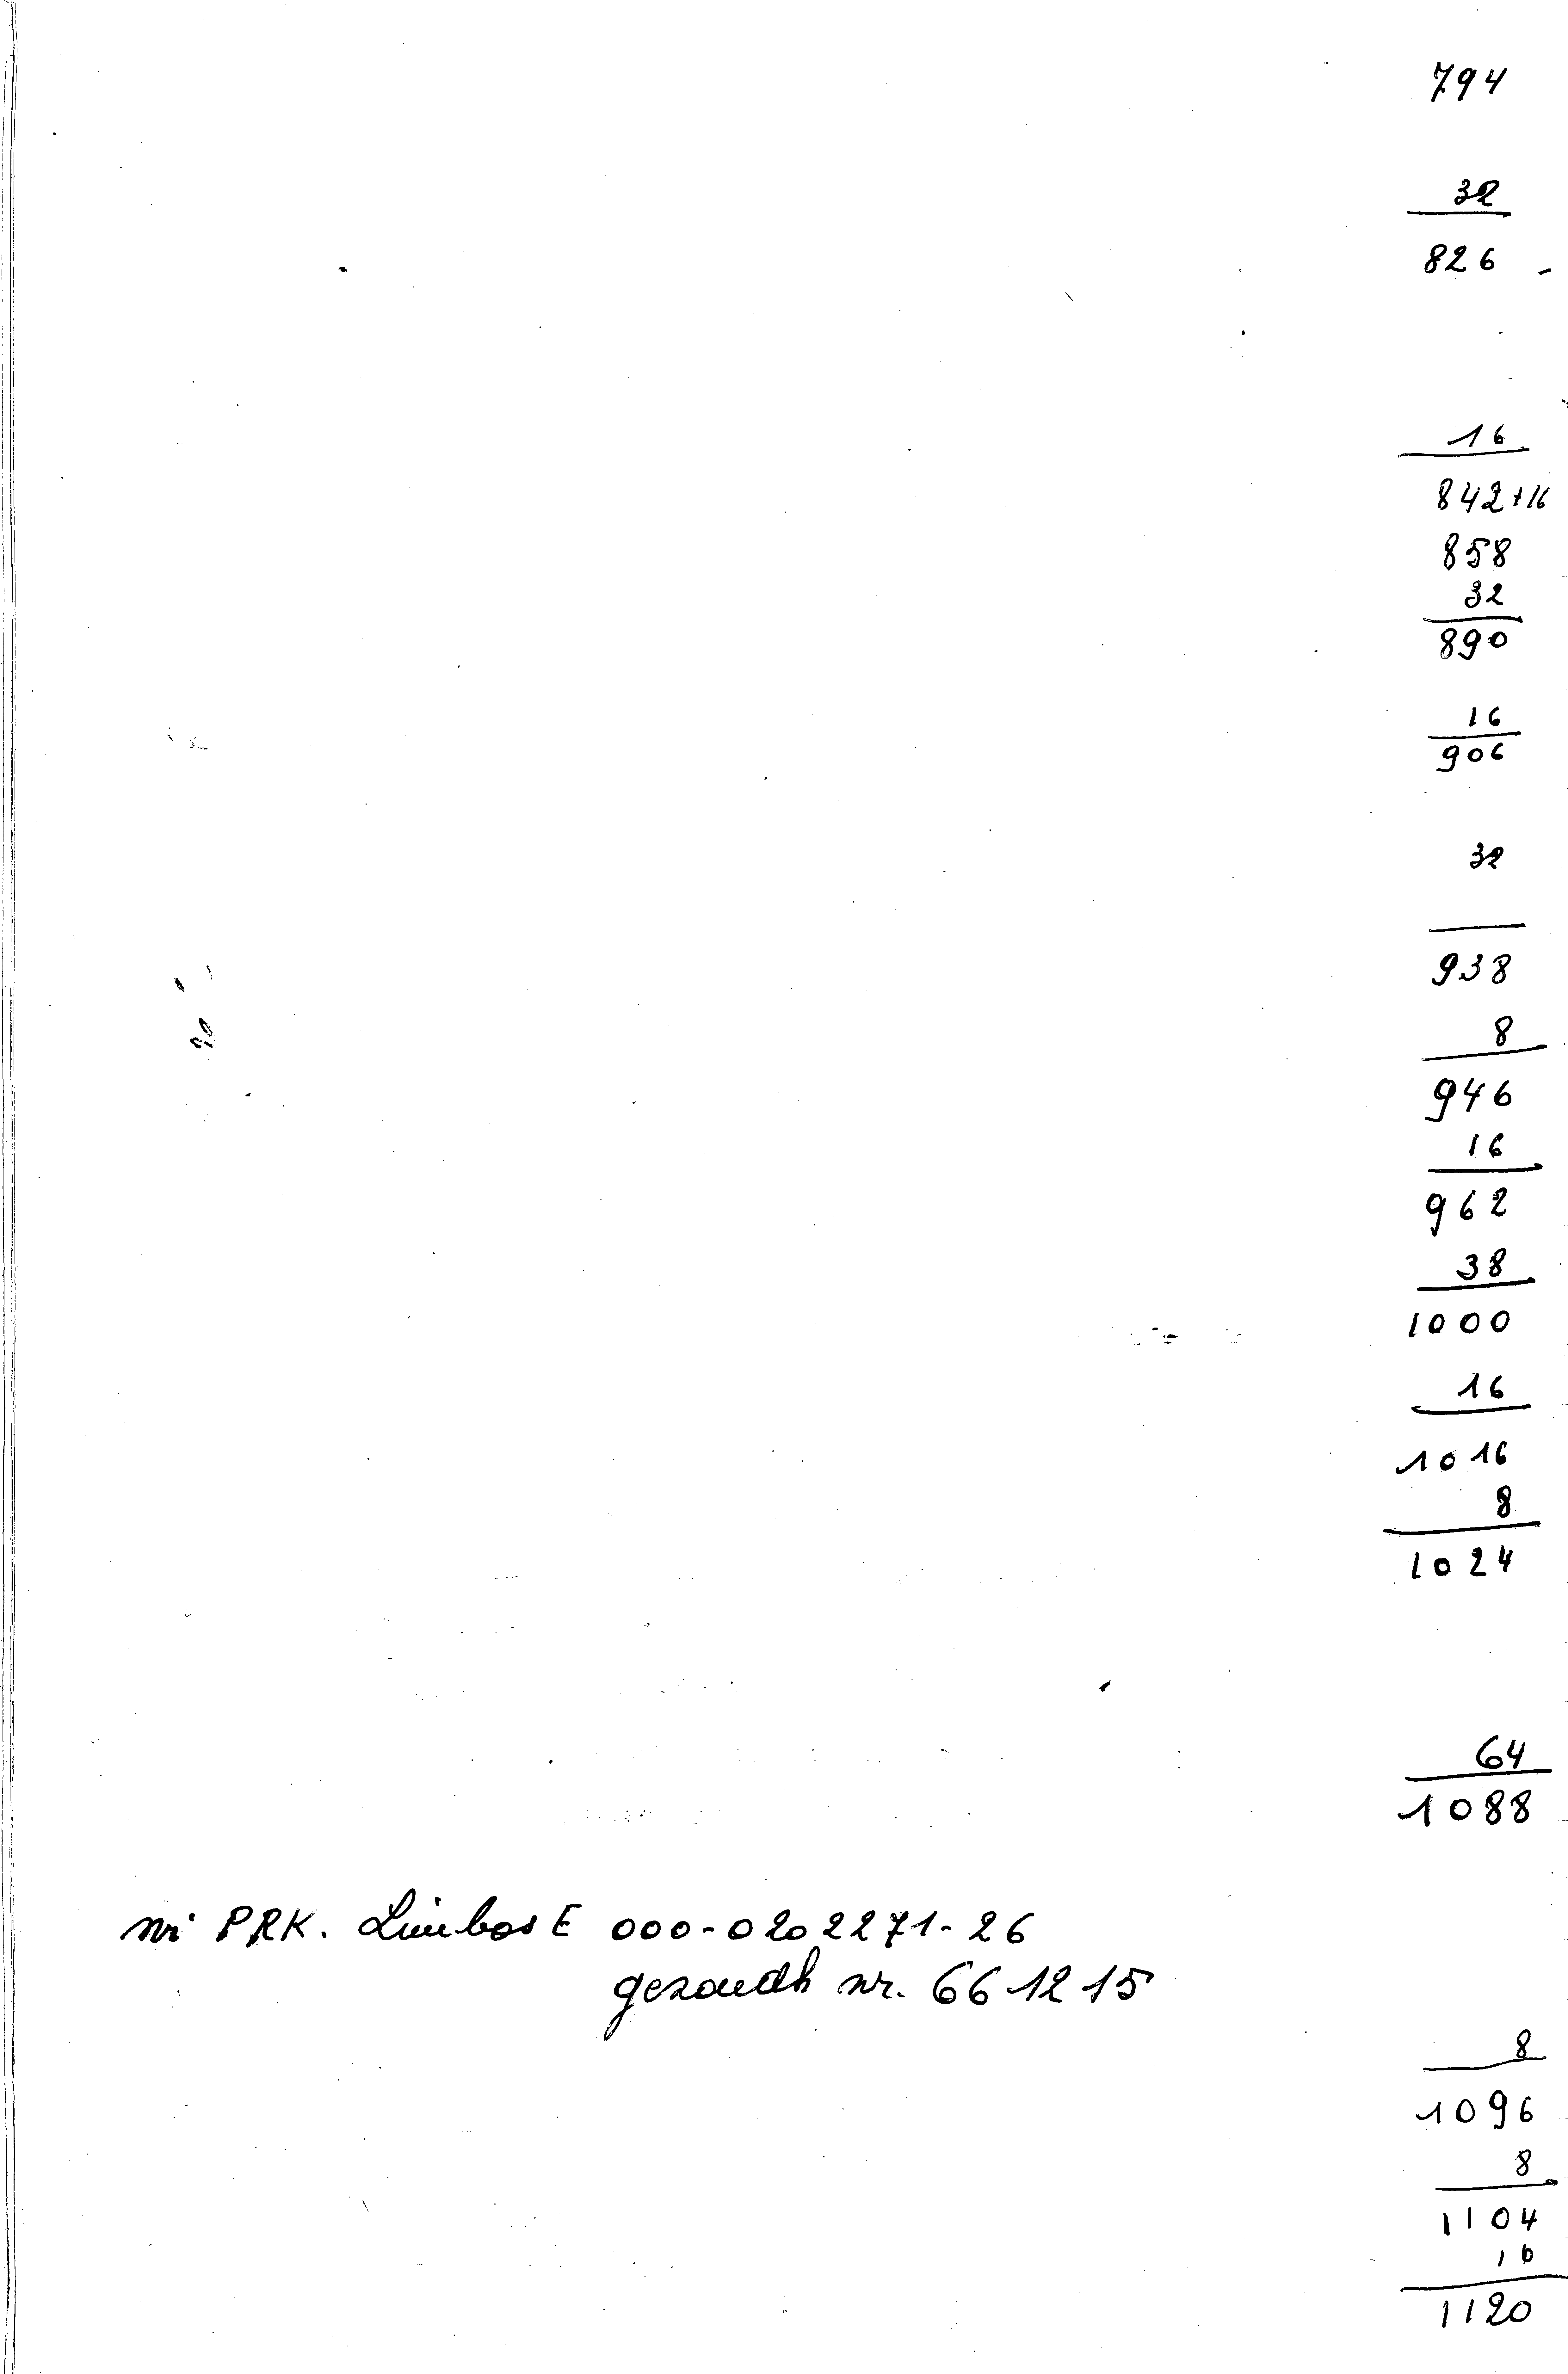 794
32
826 -
16
842+16
858
32
890
16
906
32
938
8
946
16
962
38
1000
16
1016
8
1024
64
1088
nr PRK. Limbos E 000-0202271-26
gezondh nr. 661215
8
1096
8
1104
16
1120